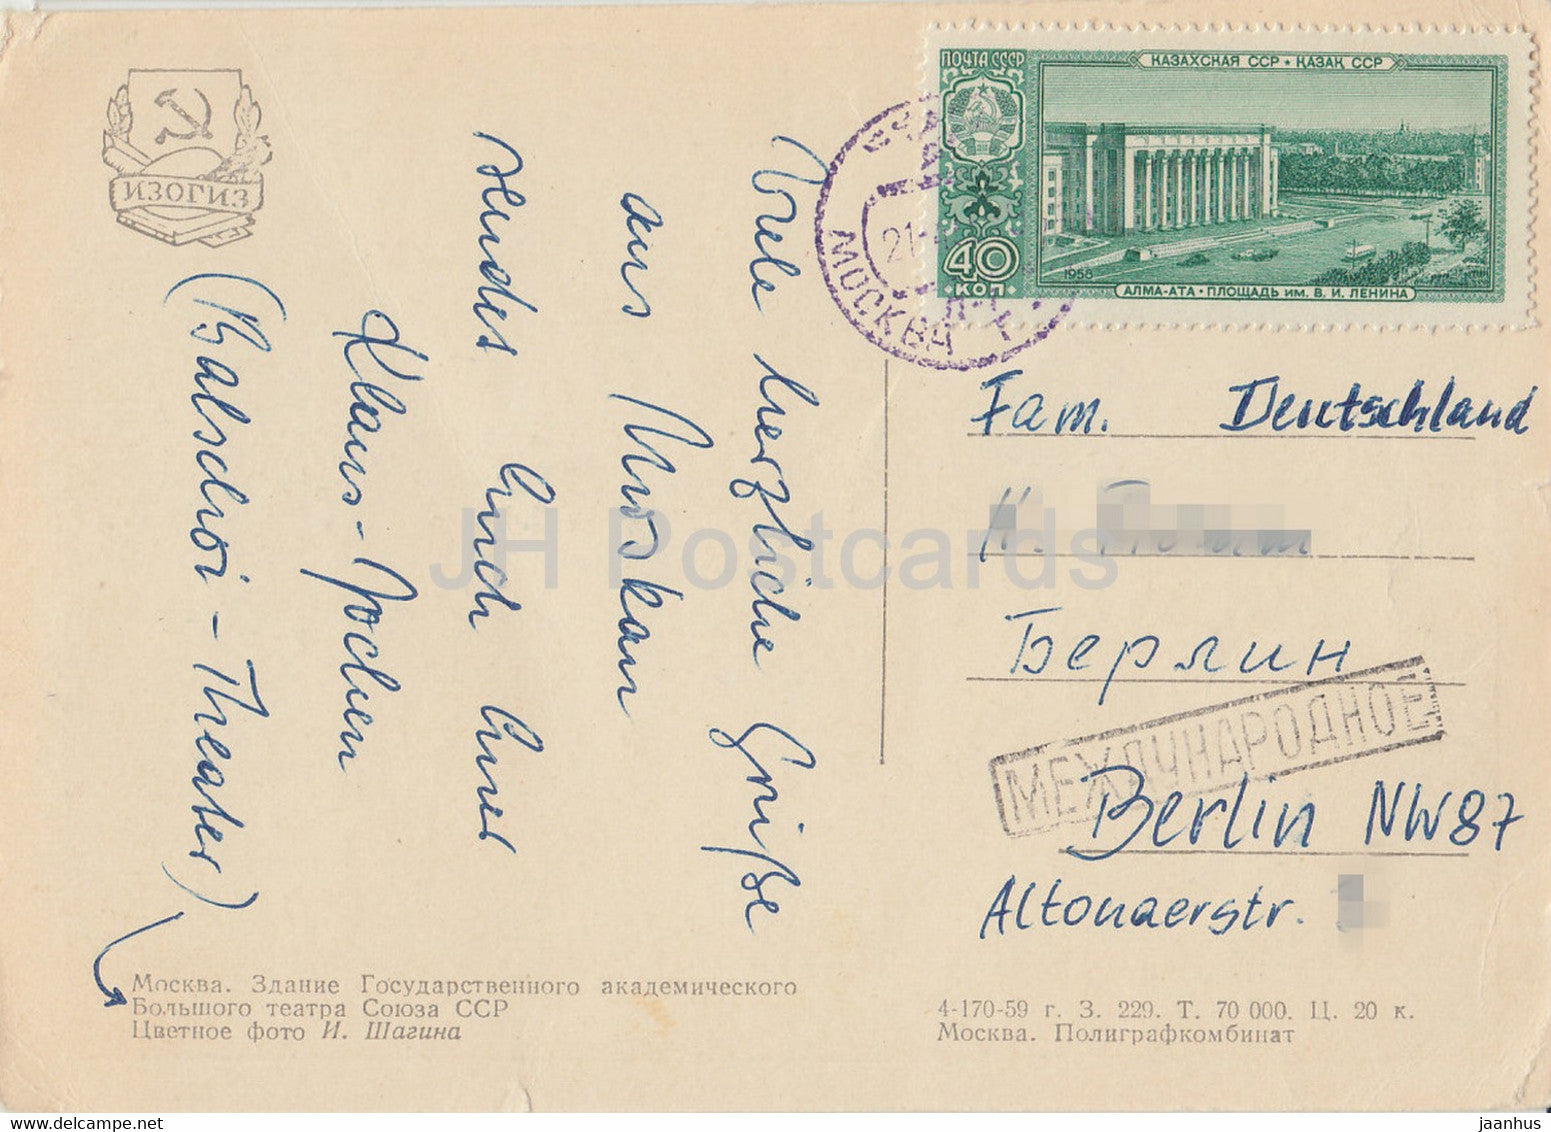 ИЗОГИЗ
Viele herzliche Grüße
aus Moskau
sendet Euch Euer
Klaus-Jochen
(Bolschoi-Theater)
Москва. Здание Государственного академического
Большого театра Союза ССР
Цветное фото И. Шагина
ПОЧТА СССР
КАЗАХСКАЯ ССР • ҚАЗАҚ ССР
40
КОП
1958
АЛМА-АТА • ПЛОЩАДЬ ИМ. В. И. ЛЕНИНА
21
МОСКВА
Fam. Deutschland
Берлин
МЕЖДУНАРОДНОЕ
Berlin NW87
Altonaerstr.
4-170-59 г. З. 229. Т. 70 000. Ц. 20 к.
Москва. Полиграфкомбинат
JH Postcards
www.delcampe.net
jaanhus